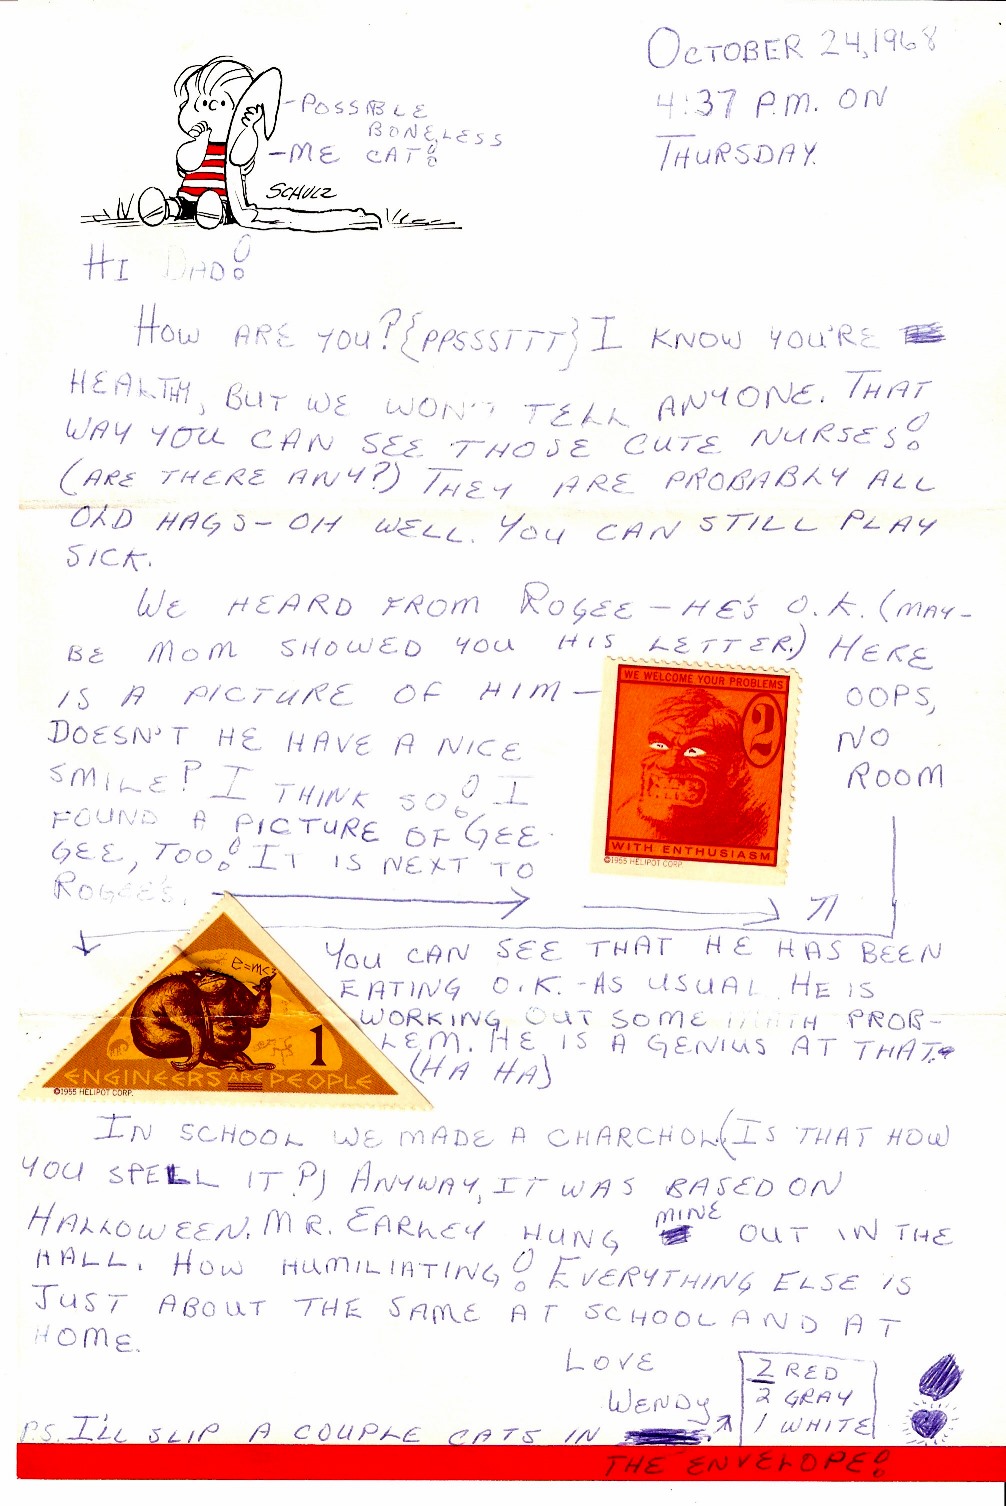 OCTOBER 24, 1968
4:37 P.M. ON
THURSDAY.
-POSSIBLE
BONELESS
-ME CAT!
SCHULZ
HI DAD!
HOW ARE YOU? {PPSSSTTT} I KNOW YOU'RE
HEALTHY, BUT WE WON'T TELL ANYONE. THAT
WAY YOU CAN SEE THOSE CUTE NURSES!
(ARE THERE ANY?) THEY ARE PROBABLY ALL
OLD HAGS - OH WELL. YOU CAN STILL PLAY
SICK.
WE HEARD FROM ROGEE - HE'S O.K. (MAY-
BE MOM SHOWED YOU HIS LETTER.) HERE
IS A PICTURE OF HIM -
DOESN'T HE HAVE A NICE
SMILE? I THINK SO! I
FOUND A PICTURE OF GEE-
GEE, TOO! IT IS NEXT TO
ROGEE'S.
WE WELCOME YOUR PROBLEMS
2
WITH ENTHUSIASM
©1955 HELIPOT CORP.
OOPS,
NO
ROOM
e=mc²
1
ENGINEERS ARE PEOPLE
©1955 HELIPOT CORP.
YOU CAN SEE THAT HE HAS BEEN
EATING O.K. - AS USUAL. HE IS
WORKING OUT SOME MATH PROB-
LEM. HE IS A GENIUS AT THAT.
(HA HA)
IN SCHOOL WE MADE A CHARCHOL (IS THAT HOW
YOU SPELL IT?) ANYWAY, IT WAS BASED ON
HALLOWEEN. MR. EARLEY HUNG MINE OUT IN THE
HALL. HOW HUMILIATING! EVERYTHING ELSE IS
JUST ABOUT THE SAME AT SCHOOL AND AT
HOME.
LOVE
WENDY
2 RED
2 GRAY
1 WHITE
P.S. I'LL SLIP A COUPLE CATS IN
THE ENVELOPE!